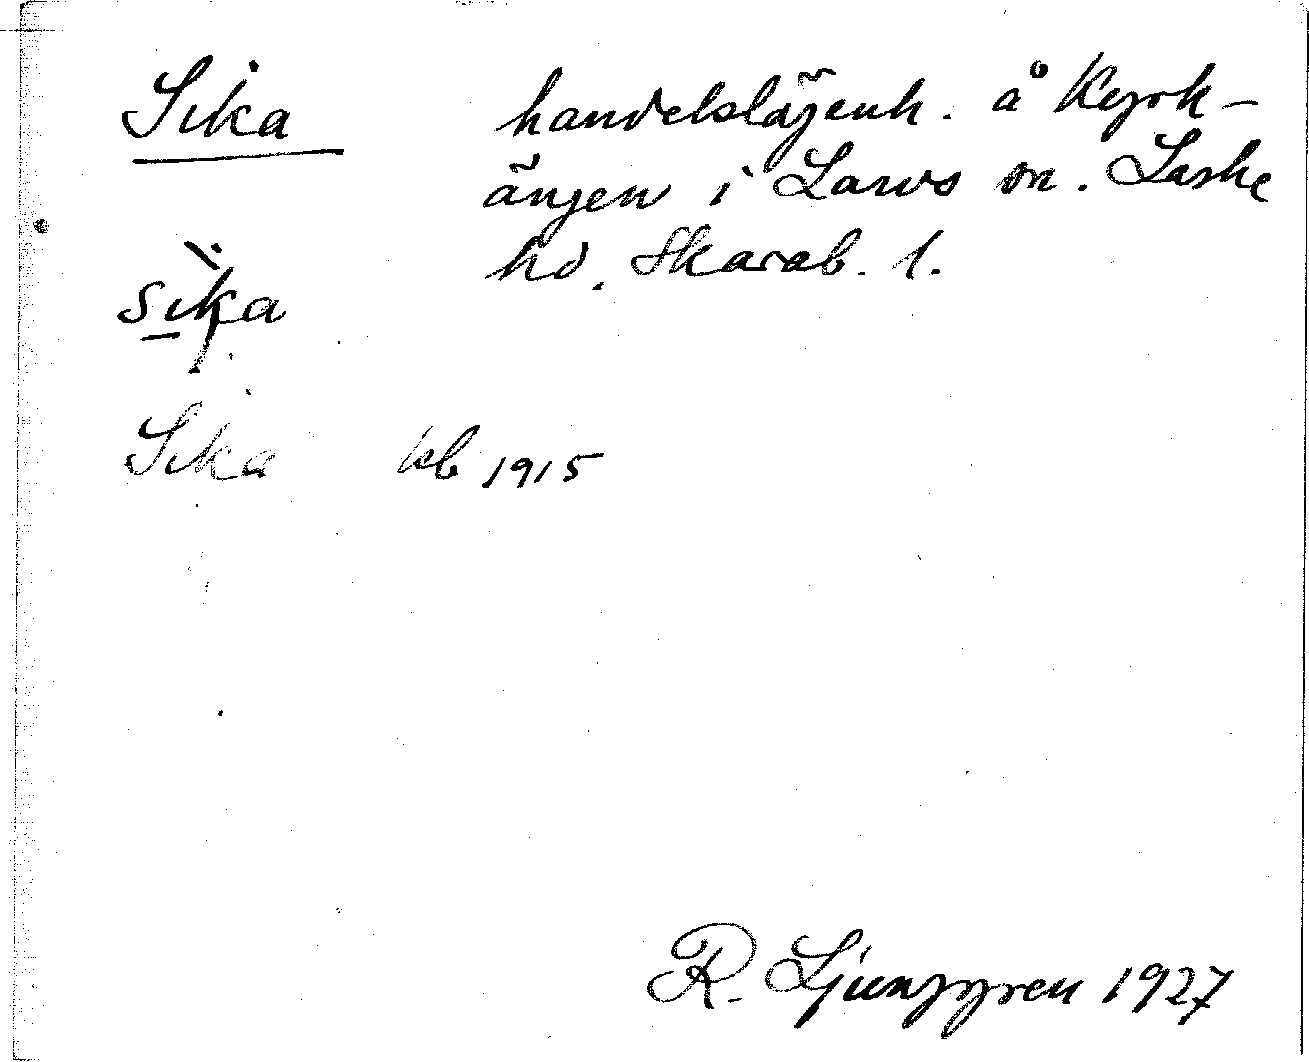 Sika handelslägenh. å Kyrk-
ängen i Larvs sn. Laske
hd. Skarab. l.
sika
Sika kb 1915
R. Ljunggren 1927